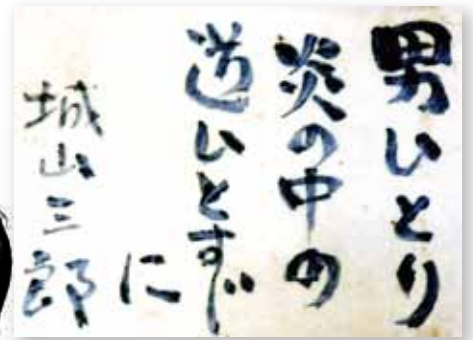 男ひとり
炎の中の
道ひとすじ
に
城山三郎